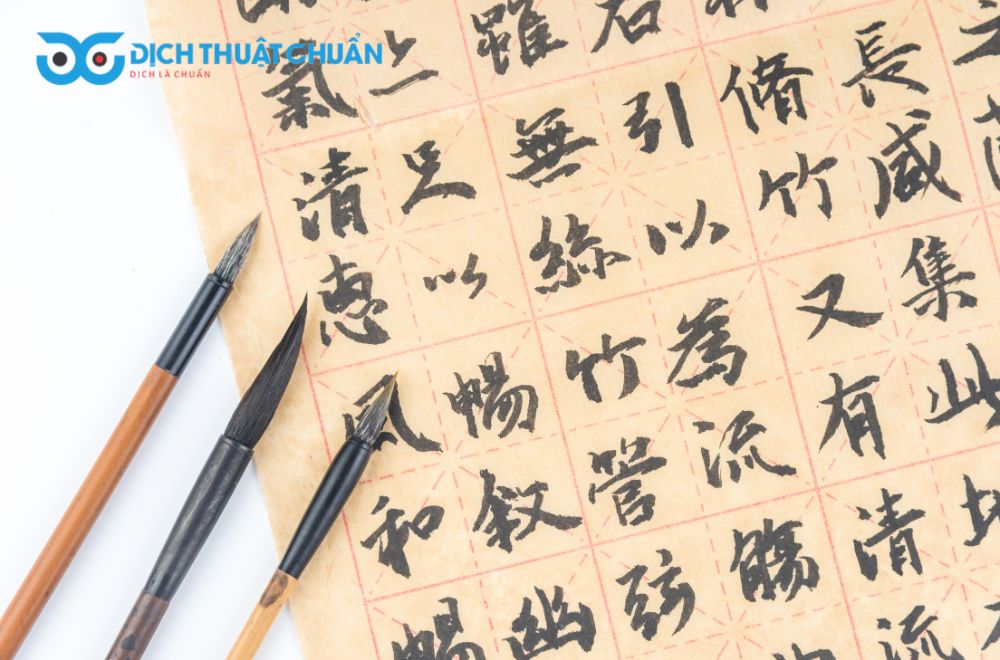 DỊCH THUẬT CHUẨN
DỊCH LÀ CHUẨN
長咸集此
脩竹又有清流
右引以為流觴
雖無絲竹管弦
足以暢敘幽
氣清惠風和暢